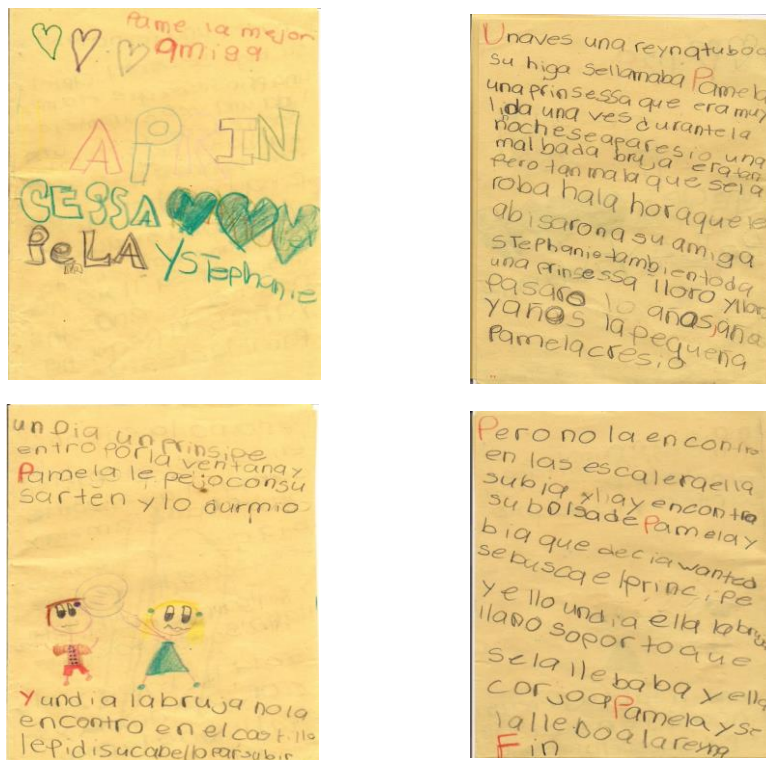 Pame la mejor
amiga
LA PRIN
CESSA
PeLA YSTephanie
Unaves una reynatuboa
su higa sellamaba Pamela
unaprinsessa que eramuy
linda una ves durantela
nocheseaparesio una
malbada bruja eratan
pero tanmala que sela
roba hala horaquele
abisarona su amiga
sTephanietambientoda
una prinsessa lloro yllor
pasaro lo añosaña
yaños la pequena
Pamelacresio
unDia unprinsipe
entroporla ventanay
Pamela le pejoconsu
sarten ylo durmio
Yundia labruja nola
encontro en el castillo
lepidisucabelloparsubir
Pero no la encontro
en las escaleraella
subia yllay encontro
subolsade Pamelay
bia que deciawanted
sebusca elprincipe
yello undia ella labruja
llano soportoque
sela llebaba yella
corjoaPamela yse
lallevoalareyna
Fin